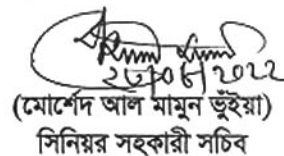 ২৮/০৮/2022
(মোর্শেদ আল মামুন ভুঁইয়া)
সিনিয়র সহকারী সচিব